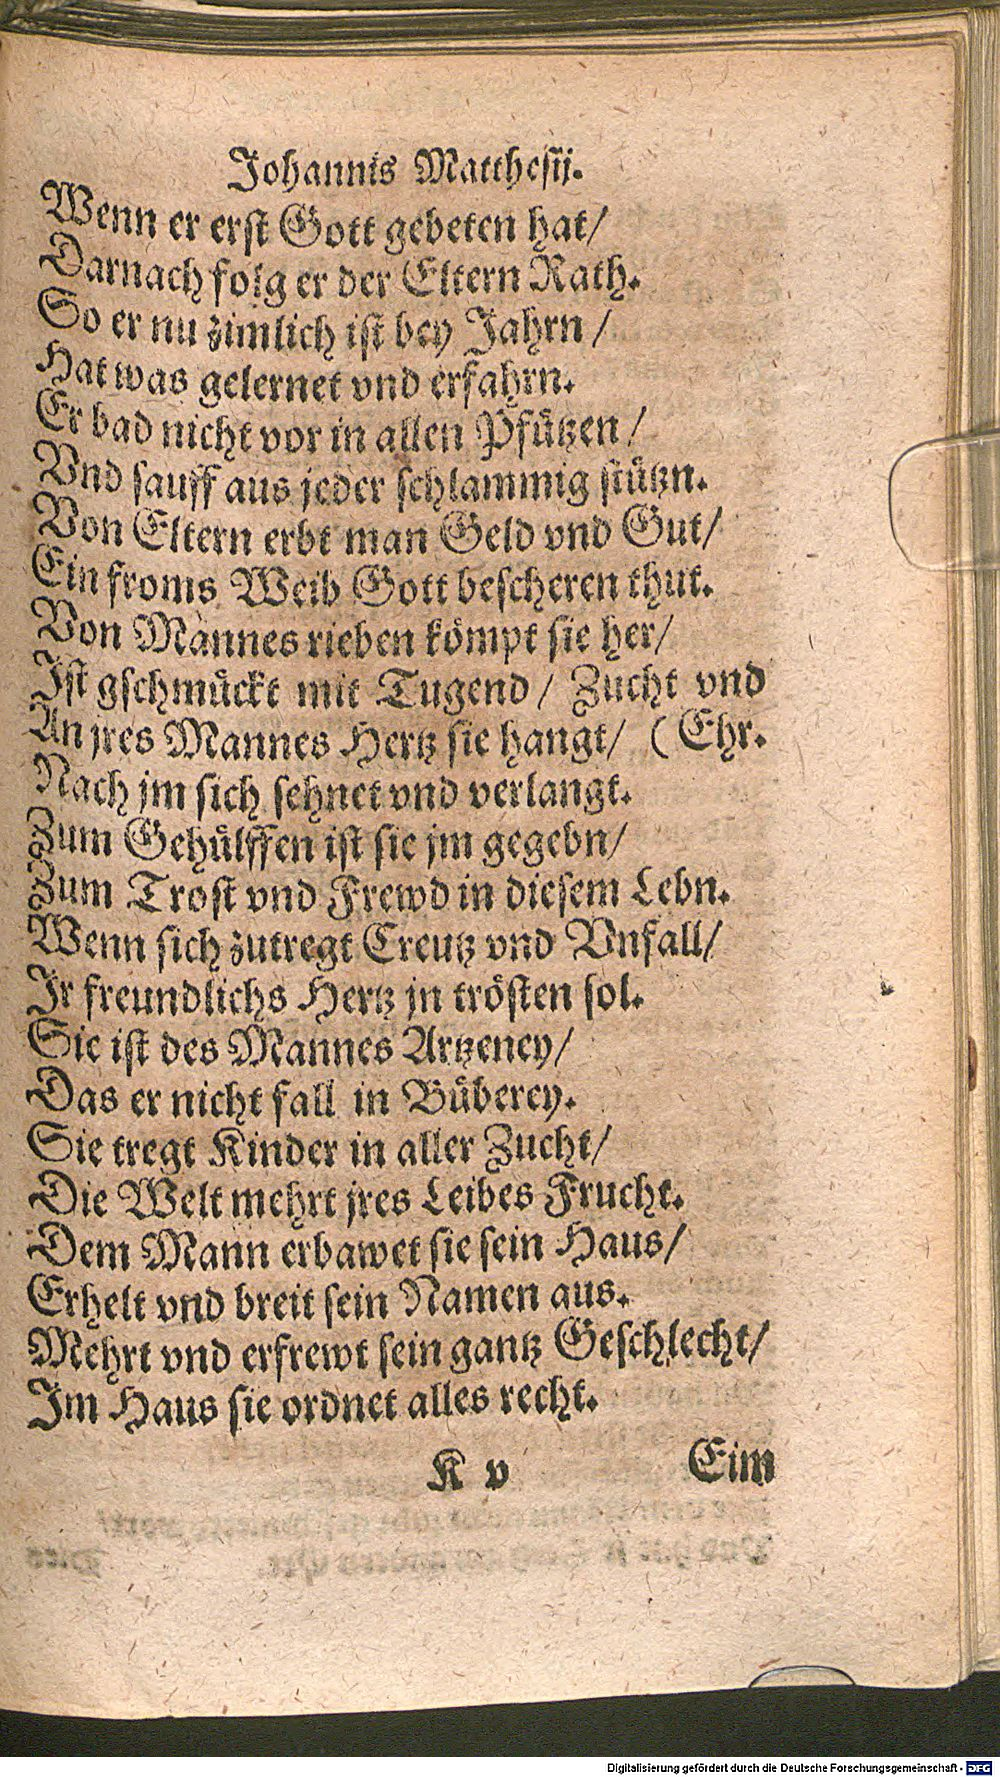 Johannis Matthesij.
Wenn er erst Gott gebeten hat/
Darnach folg er der Eltern Rath.
So er nu zimlich ist bey Jahrn /
Hat was gelernet vnd erfahrn.
Er bad nicht vor in allen Pfützen /
Vnd sauff aus jeder schlammig stützn.
Von Eltern erbt man Geld vnd Gut/
Ein froms Weib Gott bescheren thut.
Von Mannes rieben kömpt sie her/
Ist gschmückt mit Tugend / Zucht vnd
An jres Mannes Hertz sie hangt/ ( Ehr.
Nach jm sich sehnet vnd verlangt.
Zum Gehülffen ist sie jm gegebn/
Zum Trost vnd Frewd in diesem Lebn.
Wenn sich zutregt Creutz vnd Vnfall/
Ir freundlichs Hertz jn trösten sol.
Sie ist des Mannes Artzeney/
Das er nicht fall in Büberey.
Sie tregt Kinder in aller Zucht/
Die Welt mehrt jres Leibes Frucht.
Dem Mann erbawet sie sein Haus/
Erhelt vnd breit sein Namen aus.
Mehrt vnd erfrewt sein gantz Geschlecht/
Im Haus sie ordnet alles recht.
K v Eim
Digitalisierung gefördert durch die Deutsche Forschungsgemeinschaft - DFG